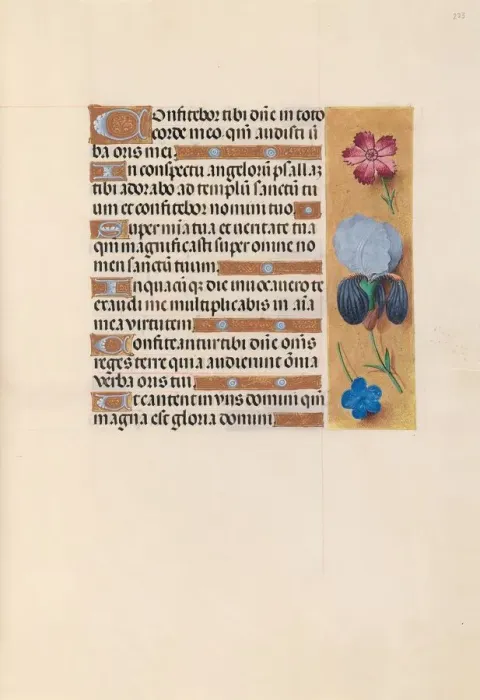 Confitebor tibi dñe in toto
corde meo qm̄ audisti ū
ba oris mei
In conspectu angelorū psallā
tibi adorabo ad templū sanctū tu
um et confitebor nomini tuo
Super mīa tua et ueritate tua
qm̄ magnificasti super omne no
men sanctū tuum
In quacūqꝫ die inuocauero te
exaudi me multiplicabis in aīa
mea virtutem
Confiteantur tibi dñe om̄s
reges terre quia audierunt ōīa
verba oris tui
Et cantent in viis domini qm̄
magna est gloria domini